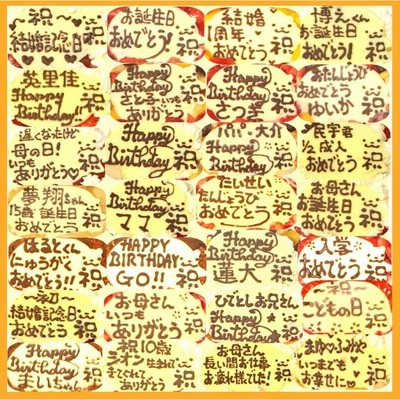 ～祝～
結婚記念日
お誕生日
おめでとう!
祝
結婚
1周年
おめでとう
祝
博えくん
お誕生日
おめでとう!
英里佳
Happy
Birthday!!
祝
Happy
Birthday
さとる いつも
ありがとう
祝
Happy
Birthday
さつき
祝
おたんじょうび
おめでとう
ゆいか
祝
遅くなったけど
母の日!
いつも
ありがとう♡
祝
Happy
Birthday
祝
パパ・大介
Happy
Birthday
祝
民宇君
1/2成人
おめでとう
祝
夢翔ちゃん
15歳 誕生日
おめでとう
祝
Happy
Birthday
ママ
祝
たいせい
たんじょうび
おめでとう
祝
お母さん
お誕生日
おめでとう
祝
はるとくん
にゅうがく
おめでとう!
祝
HAPPY
BIRTHDAY
GO!!
祝
Happy
Birthday
蓮大
祝
入学
おめでとう
祝
結婚記念日
おめでとう
祝
お母さん
いつも
ありがとう
祝
ひでとしお兄さん
Happy
Birthday★
祝
～祝～
こどもの日
Happy
Birthday
まいちゃん
祝
祝10歳
ライオン 生まれて
きてくれて
ありがとう
祝
お母さん
長い間お仕事
お疲れ様でした!
祝
まゆ♡ふみや
いつまでも
お幸せに♡
祝